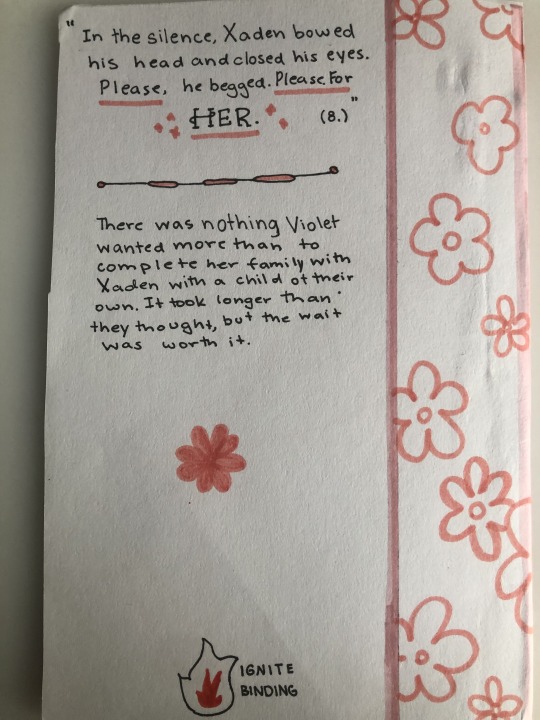 "In the silence, Xaden bowed
his head and closed his eyes.
Please, he begged. Please. For
HER. (8.)"
There was nothing Violet
wanted more than to
complete her family with
Xaden with a child of their
own. It took longer than
they thought, but the wait
was worth it.
IGNITE
BINDING